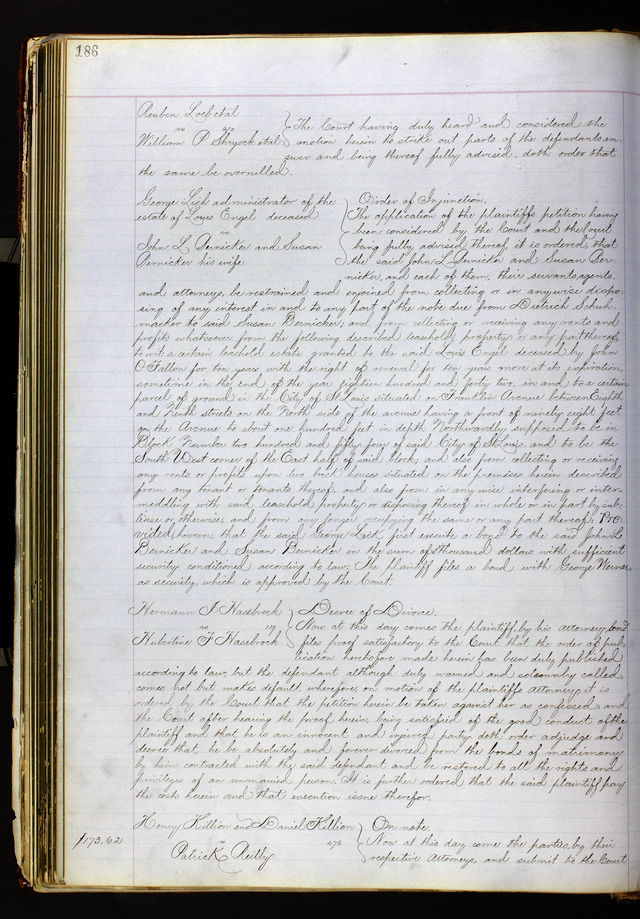 186
Reuben Loeb et al
vs
William P Shryock et al
The Court having duly heard and considered the
motion herein to strike out parts of the defendants an-
swer and being thereof fully advised, doth order that
the same be overruled.
George Lick administrator of the
estate of Louis Engel deceased
vs
John L. Bernicker and Susan
Bernicker his wife
Order of Injunction.
The application of the plaintiffs petition having
been considered by the Court and the Court
being fully advised thereof, it is ordered, that
the said John L. Bernicker and Susan Ber-
nicker, and each of them, their servants, agents,
and attorneys, be restrained and enjoined from collecting or in anywise dispo-
sing of any interest in and to any part of the note due from Dietrich Schuh-
macker to said Susan Bernicker; and from collecting or receiving any rents and
profits whatsoever from the following described leasehold property or any part thereof,
to wit: a certain leasehold estate granted to the said Louis Engel deceased by John
O'Fallon for ten years, with the right of renewal for ten years more at its expiration,
sometime in the end of the year eighteen hundred and forty two, in and to a certain
parcel of ground in the City of St. Louis situated on Franklin Avenue between Eighth
and Ninth streets on the North side of the avenue having a front of ninety eight feet
on the Avenue to about one hundred feet in depth Northwardly supposed to be in
Block Number two hundred and fifty four of said City of St. Louis. and to be the
South West corner of the East half of said block, and also from collecting or receiving
any rents or profits upon two brick houses situated on the premises herein described
from any tenant or tenants thereof, and also from in any wise interfering or inter-
meddling with said leasehold property or disposing thereof in whole or in part by sub-
lease or otherwise, and from any longer occupying the same or any part thereof; Pro-
vided, however, that the said George Lick first execute a bond to the said John L
Bernicker and Susan Bernicker in the sum of thousand dollars with sufficient
security conditioned according to law; The plaintiff files a bond with George Werner
as security, which is approved by the Court.
Hermann I Haselrock
vs 119
Hubertine F Haselrock
Decree of Divorce.
Now at this day comes the plaintiff, by his attorney, and
files proof satisfactory to the Court that the order of pub-
lication heretofore made herein has been duly published
according to law, but the defendant although duly warned and solemnly called
comes not but makes default, wherefore, on motion of the plaintiffs attorney, it is
ordered by the Court that the petition herein be taken against her as confessed; and
the Court after hearing the proof herein, being satisfied of the good conduct of the
plaintiff and that he is an innocent and injured party doth order adjudge and
decree that he be absolutely and forever divorced from the bonds of matrimony
by him contracted with the said defendant and be restored to all the rights and
privileges of an unmarried person. It is further ordered that the said plaintiff pay
the costs herein and that execution issue therefor.
Henry Killion and Daniel Killion
vs
Patrick Reilly
On note.
$173.62
Now at this day come the parties, by their
respective Attorneys, and submit to the Court